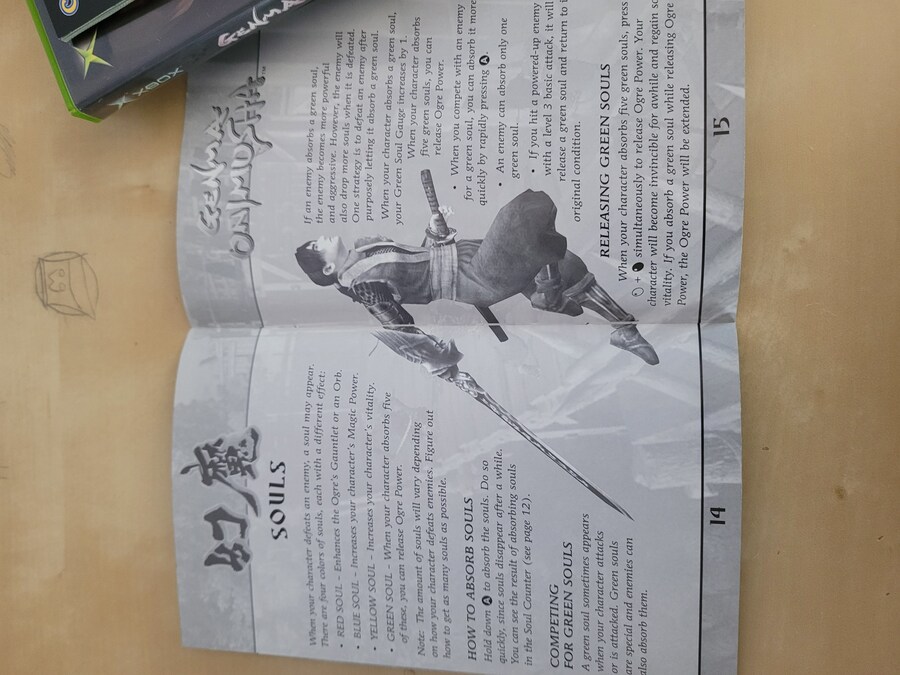 幻魔
SOULS
When your character defeats an enemy, a soul may appear.
There are four colors of souls, each with a different effect:
• RED SOUL – Enhances the Ogre's Gauntlet or an Orb.
• BLUE SOUL – Increases your character's Magic Power.
• YELLOW SOUL – Increases your character's vitality.
• GREEN SOUL – When your character absorbs five
of these, you can release Ogre Power.
Note: The amount of souls will vary depending
on how your character defeats enemies. Figure out
how to get as many souls as possible.
HOW TO ABSORB SOULS
Hold down Ⓐ to absorb the souls. Do so
quickly, since souls disappear after a while.
You can see the result of absorbing souls
in the Soul Counter (see page 12).
COMPETING
FOR GREEN SOULS
A green soul sometimes appears
when your character attacks
or is attacked. Green souls
are special and enemies can
also absorb them.
14
GENMA
ONIMUSHA
If an enemy absorbs a green soul,
the enemy becomes more powerful
and aggressive. However, the enemy will
also drop more souls when it is defeated.
One strategy is to defeat an enemy after
purposely letting it absorb a green soul.
When your character absorbs a green soul,
your Green Soul Gauge increases by 1.
When your character absorbs
five green souls, you can
release Ogre Power.
• When you compete with an enemy
for a green soul, you can absorb it more
quickly by rapidly pressing Ⓐ.
• An enemy can absorb only one
green soul.
• If you hit a powered-up enemy
with a level 3 basic attack, it will
release a green soul and return to
original condition.
RELEASING GREEN SOULS
When your character absorbs five green souls, press
+ simultaneously to release Ogre Power. Your
character will become invincible for awhile and regain
vitality. If you absorb a green soul while releasing Ogre
Power, the Ogre Power will be extended.
15
XBOX
GENMA